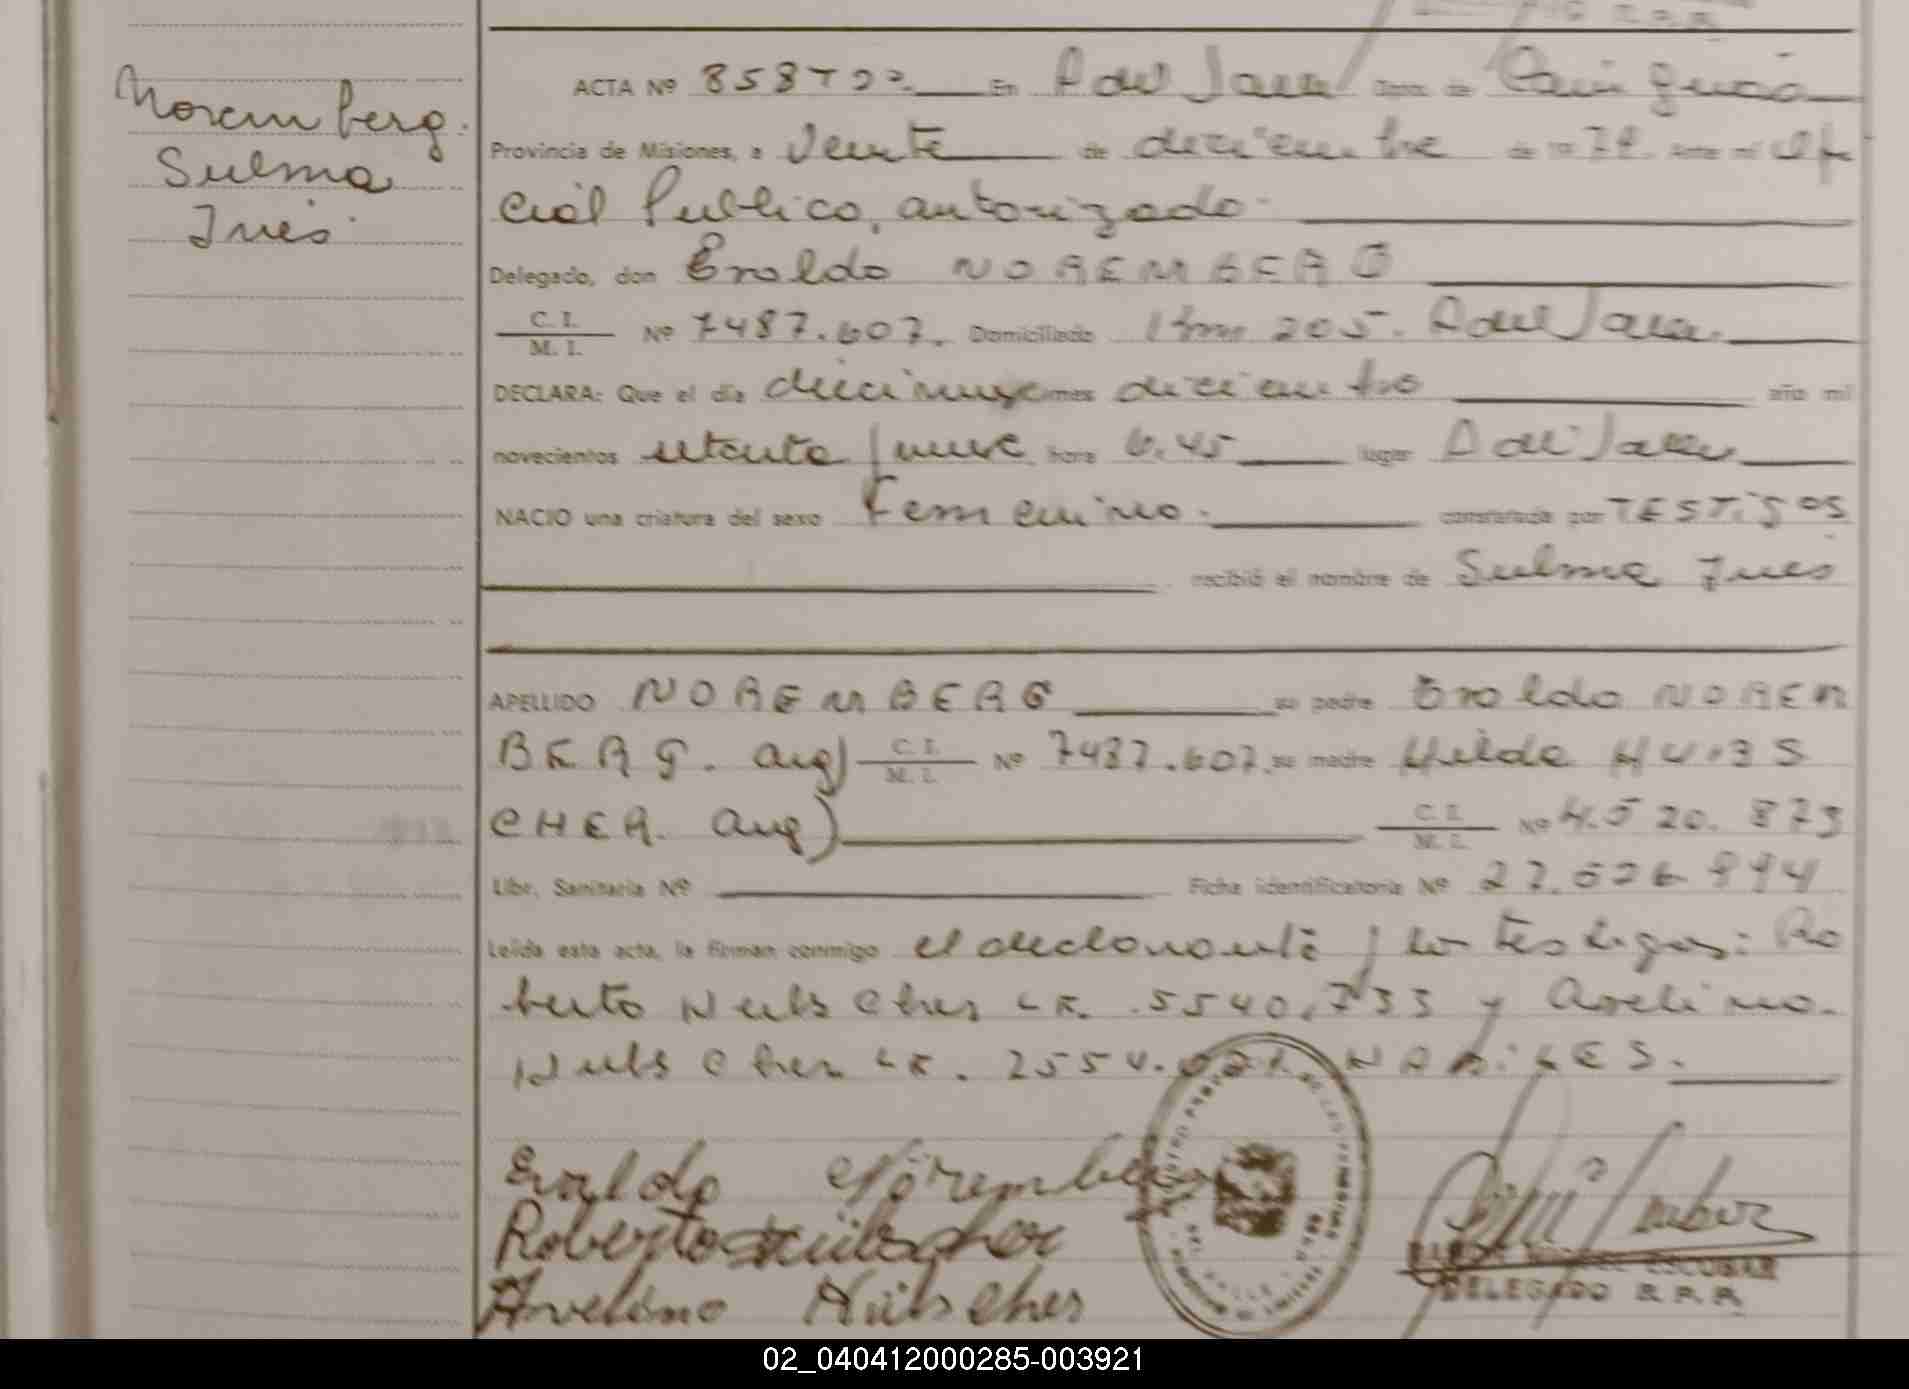 Noremberg.
Sulma
Inés
ACTA Nº 858 Tº 2º. En Pdor Dpto. de Cain guás
Provincia de Misiones, a veinte de diciembre de 19 79. Ante mí ofi
cial Publico, autorizado.
Delegado, don Eraldo NOREMBERG
C. I. / M. I. Nº 7487.607. Domiciliado Km 205.
DECLARA: Que el día diecinueve mes diciembre año mil
novecientos setenta y nueve hora 6,45 lugar
NACIO una criatura del sexo Femenino. constatada por TESTIGOS
recibió el nombre de Sulma Inés
APELLIDO NOREMBERG su padre Eraldo NOREM
BERG. arg) C. I. / M. I. Nº 7487.607. su madre Hilda HUBS
CHER. arg) C. I. / M. I. Nº 4.520.873
Libr. Sanitaria Nº Ficha identificatoria Nº 27.526.994
Leída esta acta, la firman conmigo el declarante y los testigos: Ro
berto Hubscher L.E. 5540.733 y Avelino
Hubscher L.E. 2554.021. HABILES.
Eraldo Noremberg
Roberto Hübscher
Avelino Hübscher
ESCOBAR
DELEGADO R.P.P.
02_040412000285-003921